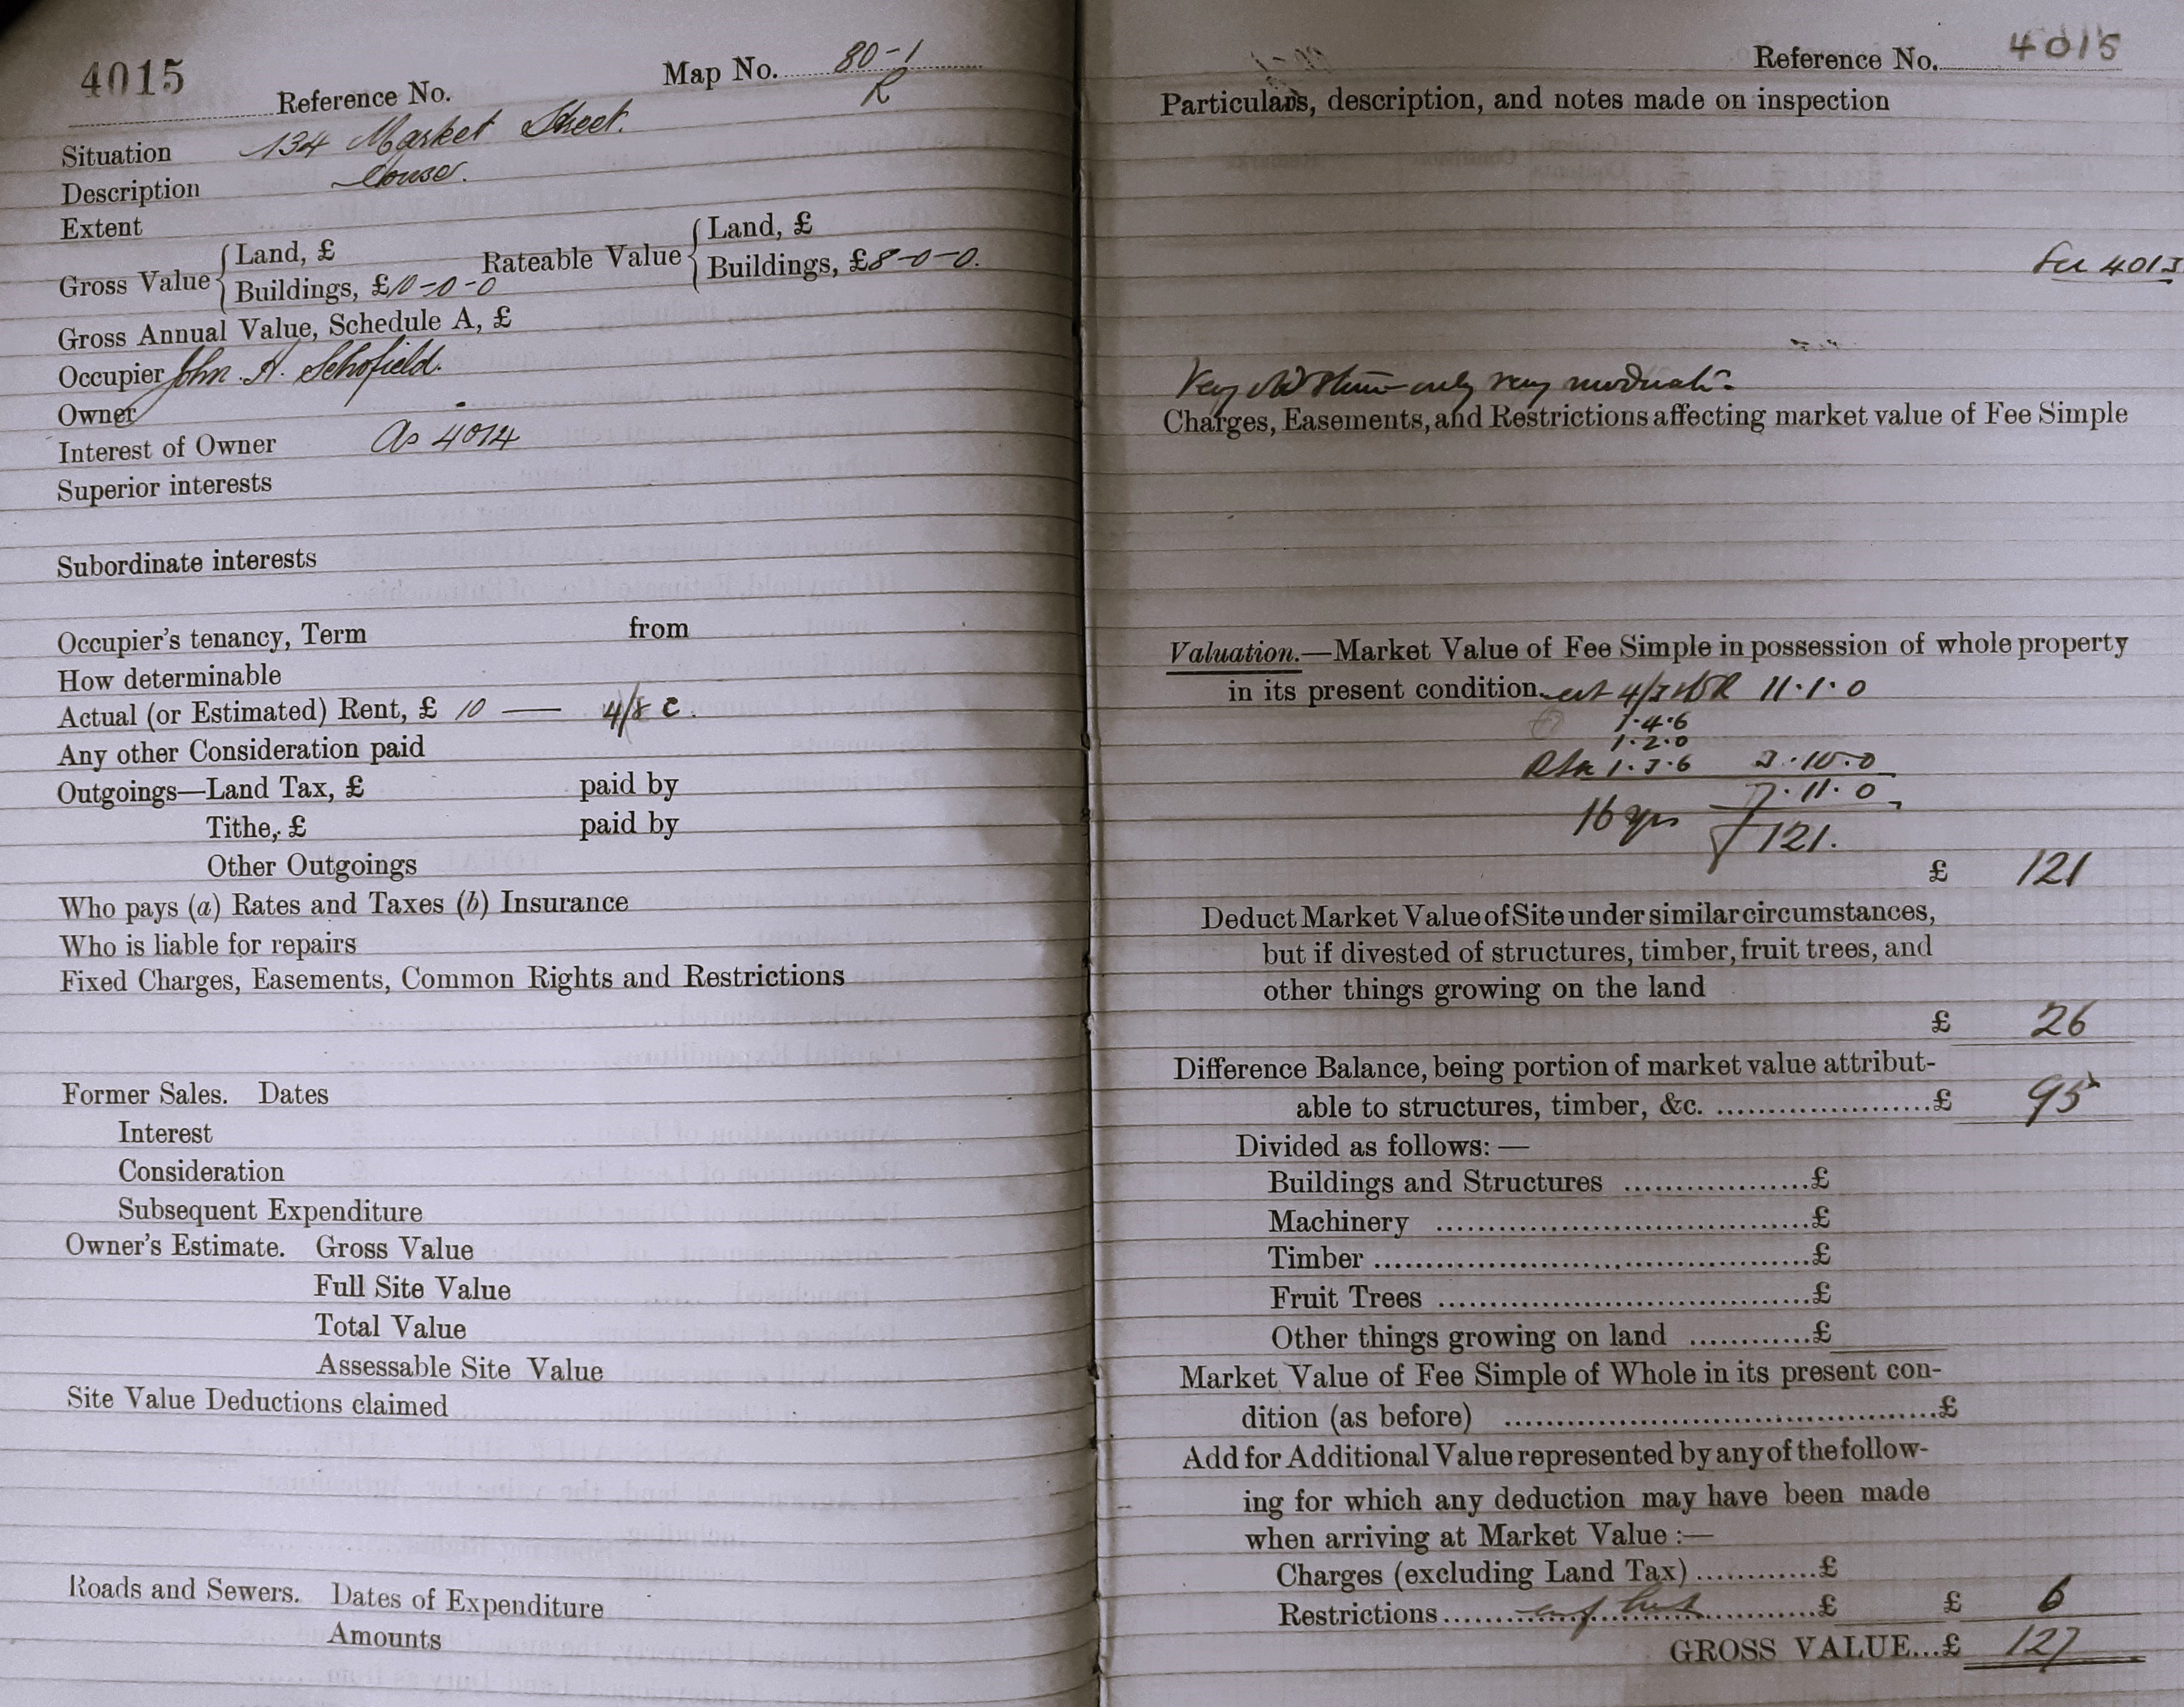 4015
Reference No.
Map No. 80-1
R
Situation 134 Market Street.
Description House.
Extent
Gross Value { Land, £
Buildings, £10-0-0
Rateable Value { Land, £
Buildings, £8-0-0.
Gross Annual Value, Schedule A, £
Occupier John. H. Schofield.
Owner
Interest of Owner As 4014
Superior interests
Subordinate interests
Occupier's tenancy, Term from
How determinable
Actual (or Estimated) Rent, £ 10 — 4/8 c.
Any other Consideration paid
Outgoings—Land Tax, £ paid by
Tithe, £ paid by
Other Outgoings
Who pays (a) Rates and Taxes (b) Insurance
Who is liable for repairs
Fixed Charges, Easements, Common Rights and Restrictions
Former Sales. Dates
Interest
Consideration
Subsequent Expenditure
Owner's Estimate. Gross Value
Full Site Value
Total Value
Assessable Site Value
Site Value Deductions claimed
Roads and Sewers. Dates of Expenditure
Amounts
Reference No. 4015
Particulars, description, and notes made on inspection
See 4013
Very old stone only very moderate.
Charges, Easements, and Restrictions affecting market value of Fee Simple
Valuation.—Market Value of Fee Simple in possession of whole property
in its present condition. 11.1.0
1.4.6
1.2.0
1.3.6 3.10.0
7.11.0
16 yrs 121.
£ 121
Deduct Market Value of Site under similar circumstances,
but if divested of structures, timber, fruit trees, and
other things growing on the land
£ 26
Difference Balance, being portion of market value attribut-
able to structures, timber, &c. £ 95
Divided as follows:—
Buildings and Structures £
Machinery £
Timber £
Fruit Trees £
Other things growing on land £
Market Value of Fee Simple of Whole in its present con-
dition (as before) £
Add for Additional Value represented by any of the follow-
ing for which any deduction may have been made
when arriving at Market Value :—
Charges (excluding Land Tax) £
Restrictions £ £ 6
GROSS VALUE...£ 127